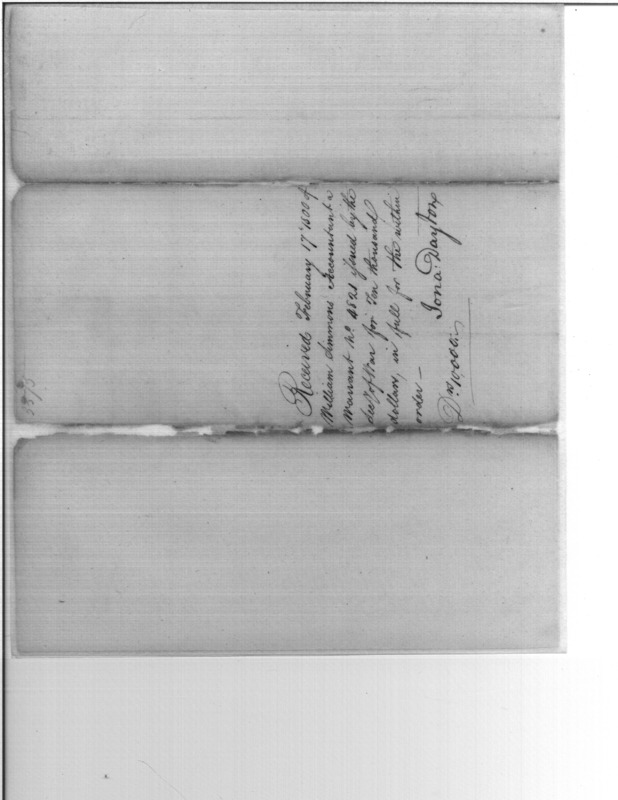 Received February 17th 1800 of
William Simmons Accountant a
Warrant No. 4521 issued by the
Secy of War for Ten thousand
dollars, in full for the within
order —
Jona: Dayton
Drs 10,000